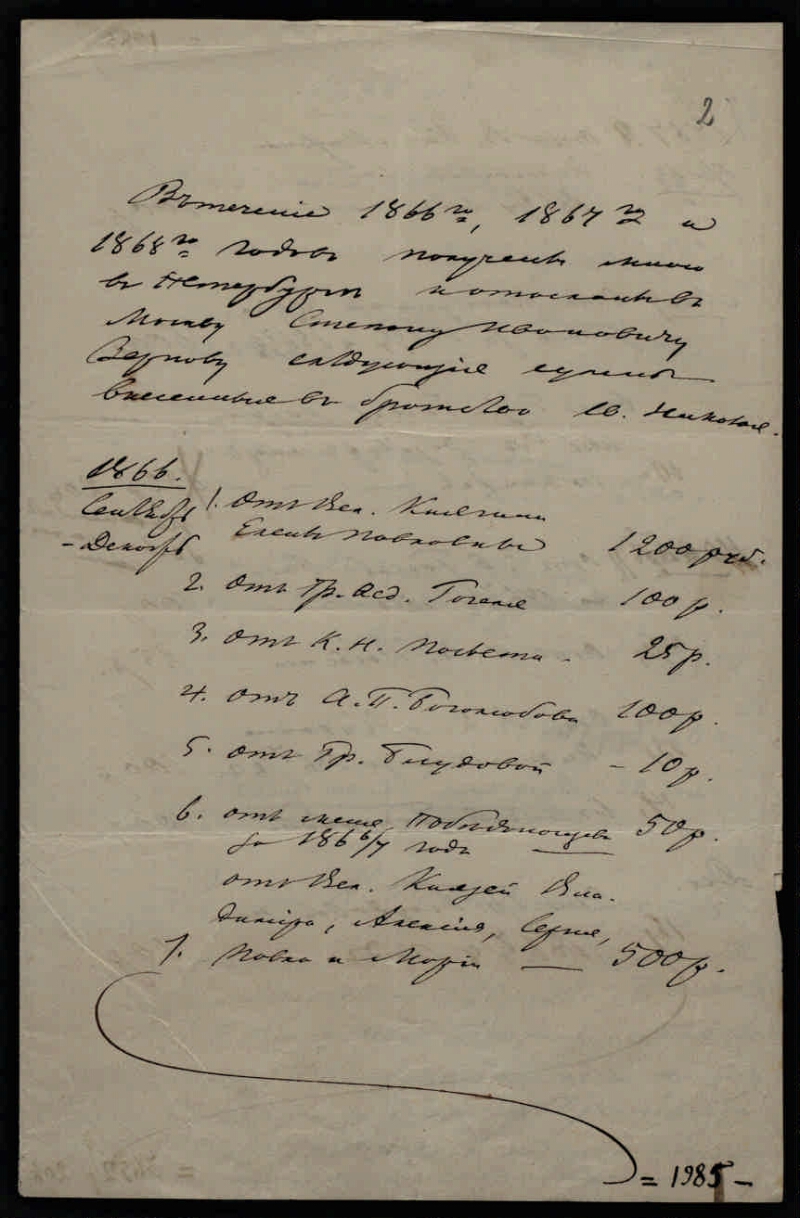 2
Втечение 1866го, 1867го и
1868го годов получено мною
в Петербурге и отослано в
Москву Степану Ивановичу
Зернову следующие суммы
внесенные в братство Св. Николая.
1866.
Сентябрь 1. От Вел. Княгини
- Декабрь Елены Павловны 1200 руб.
2. От Гр. Гогеля - 100 р.
3. От К. Н. Посьета - 25 р.
4. От А. П. Боголюбова 100 р.
5. От Гр. Блудовой - 10 р.
6. От меня, Победоносцева 50 р.
за 1866/7 год
от Вел. Князей Вла-
димiра, Алексiя, Сергiя,
7. Павла и Марiи — 500 р.
= 1985 -